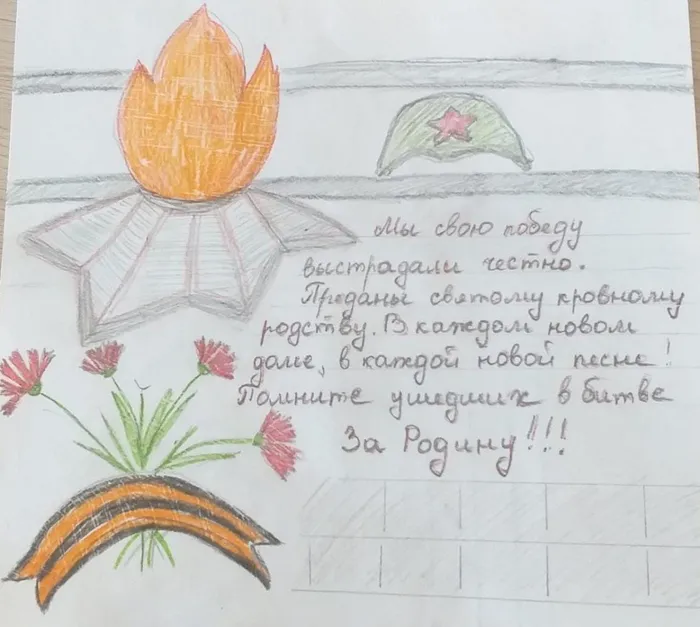 Мы свою победу
выстрадали честно.
Преданы святому кровному
родству. В каждом новом
доме, в каждой новой песне!
Помните ушедших в битве
За Родину!!!